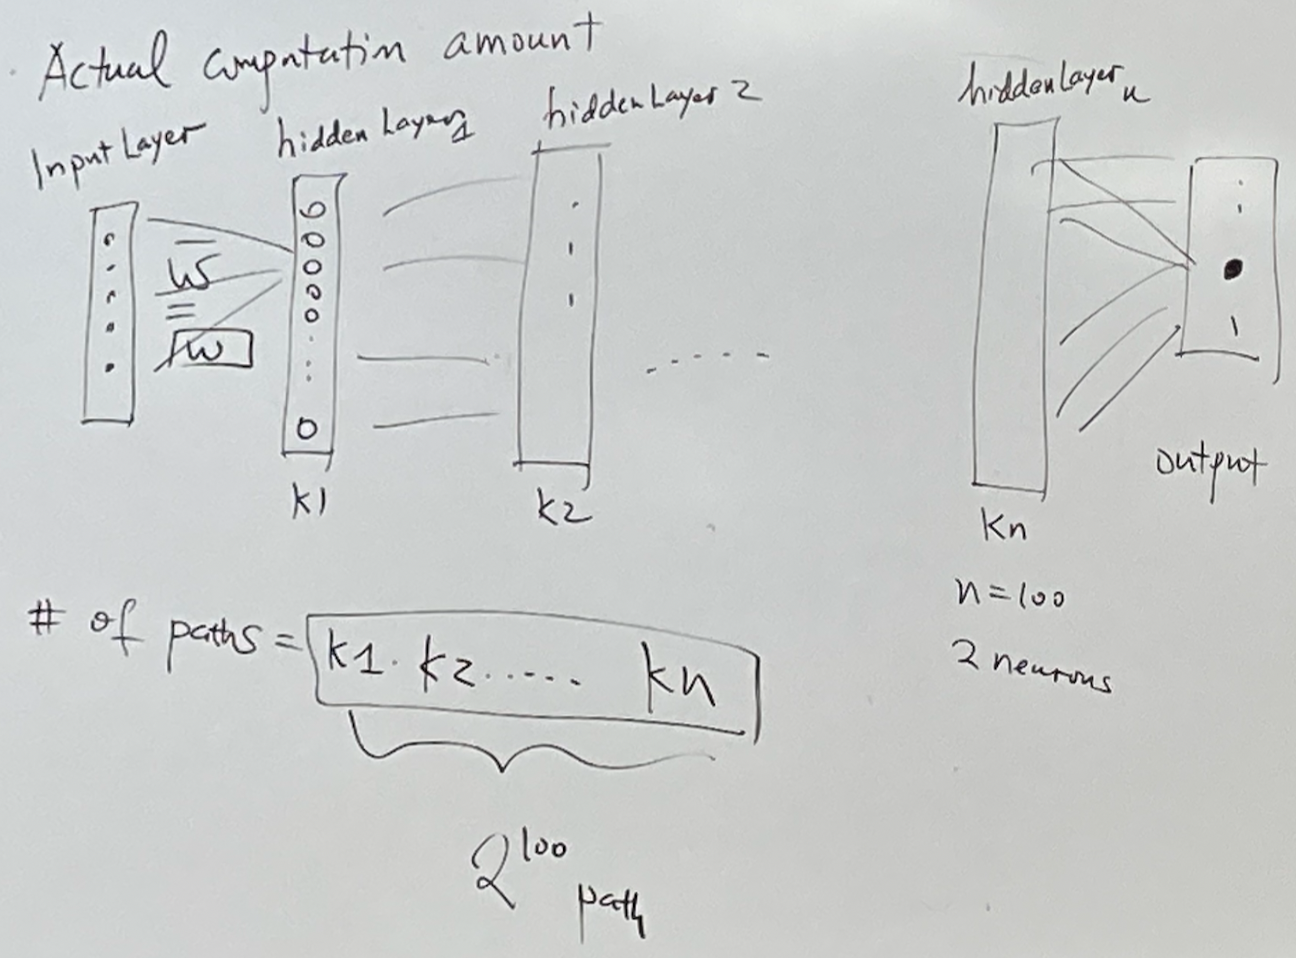 Actual computation amount
Input Layer
hidden Layer 1
hidden Layer 2
hidden Layer n
w
w
k1
k2
.....
kn
output
n=100
2 neurons
# of paths = k1. k2..... kn
2^100 path